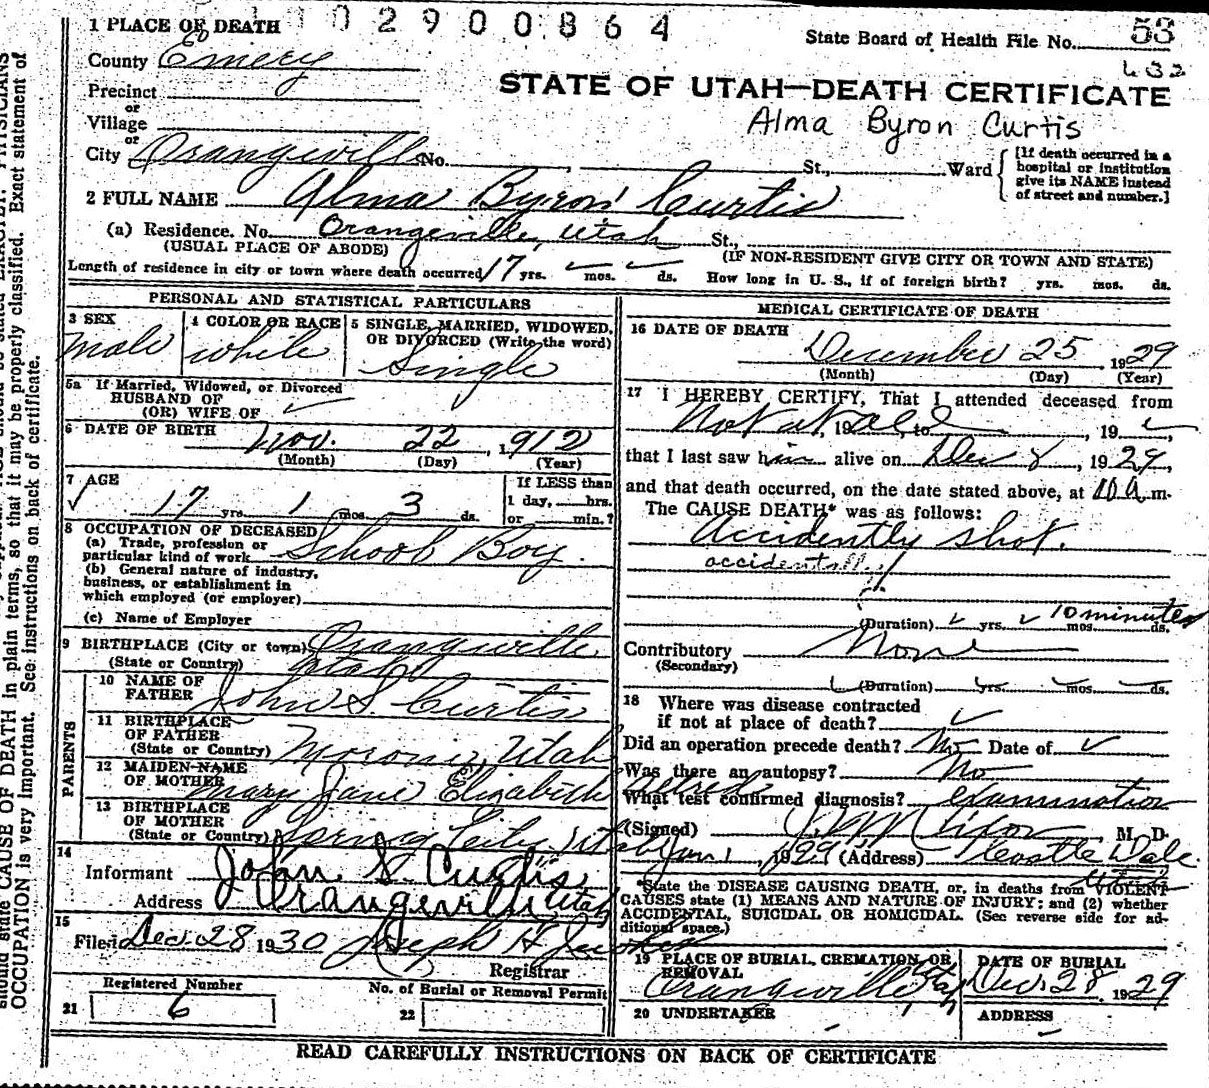 1 PLACE OF DEATH
1 0 2 9 0 0 8 6 4
State Board of Health File No. 53
432
County Emery
STATE OF UTAH—DEATH CERTIFICATE
Precinct
or
Village
Alma Byron Curtis
or
City Orangeville No. St., Ward
[If death occurred in a hospital or institution give its NAME instead of street and number.]
2 FULL NAME Alma Byron Curtis
(a) Residence. No. Orangeville, Utah St.,
(USUAL PLACE OF ABODE) (IF NON-RESIDENT GIVE CITY OR TOWN AND STATE)
Length of residence in city or town where death occurred 17 yrs. ✓ mos. ✓ ds. How long in U. S., if of foreign birth? yrs. mos. ds.
PERSONAL AND STATISTICAL PARTICULARS
3 SEX
Male
4 COLOR OR RACE
White
5 SINGLE, MARRIED, WIDOWED, OR DIVORCED (Write the word)
Single
5a If Married, Widowed, or Divorced
HUSBAND OF
(OR) WIFE OF ✓
6 DATE OF BIRTH Nov. 22, 1912
(Month) (Day) (Year)
7 AGE
✓ 17 yrs. 1 mos. 3 ds.
If LESS than
1 day, hrs.
or min.?
8 OCCUPATION OF DECEASED
(a) Trade, profession or
particular kind of work School Boy.
(b) General nature of industry,
business, or establishment in
which employed (or employer)
(c) Name of Employer
9 BIRTHPLACE (City or town) Orangeville
(State or Country) Utah
PARENTS
10 NAME OF
FATHER John S. Curtis
11 BIRTHPLACE
OF FATHER
(State or Country) Moroni, Utah
12 MAIDEN NAME
OF MOTHER Mary Jane Elizabeth Allred
13 BIRTHPLACE
OF MOTHER
(State or Country) Spring City Utah
14
Informant John S. Curtis
Address Orangeville Utah
15
Filed Dec. 28 1930 Joseph H.
Registrar
Registered Number
21 6
No. of Burial or Removal Permit
22
MEDICAL CERTIFICATE OF DEATH
16 DATE OF DEATH
December 25 1929
(Month) (Day) (Year)
17 I HEREBY CERTIFY, That I attended deceased from
Not at, 19 all, to , 19 ✓,
that I last saw him alive on Dec 8, 1929,
and that death occurred, on the date stated above, at 10 A m.
The CAUSE DEATH* was as follows:
Accidently shot.
accidentally
(Duration) ✓ yrs. ✓ mos. 10 minutes ds.
Contributory None
(Secondary)
(Duration) yrs. mos. ds.
18 Where was disease contracted
if not at place of death? ✓
Did an operation precede death? No Date of ✓
Was there an autopsy? No
What test confirmed diagnosis? examination
(Signed) M. D.
Jan 1, 1929 (Address) Castle Dale
Utah
*State the DISEASE CAUSING DEATH, or, in deaths from VIOLENT
CAUSES state (1) MEANS AND NATURE OF INJURY; and (2) whether
ACCIDENTAL, SUICIDAL OR HOMICIDAL. (See reverse side for ad-
ditional space.)
19 PLACE OF BURIAL, CREMATION, OR
REMOVAL
Orangeville Utah
DATE OF BURIAL
Dec. 28, 1929
20 UNDERTAKER
ADDRESS
READ CAREFULLY INSTRUCTIONS ON BACK OF CERTIFICATE
should state CAUSE OF DEATH in plain terms, so that it may be properly classified. Exact statement of
OCCUPATION is very important. See instructions on back of certificate.